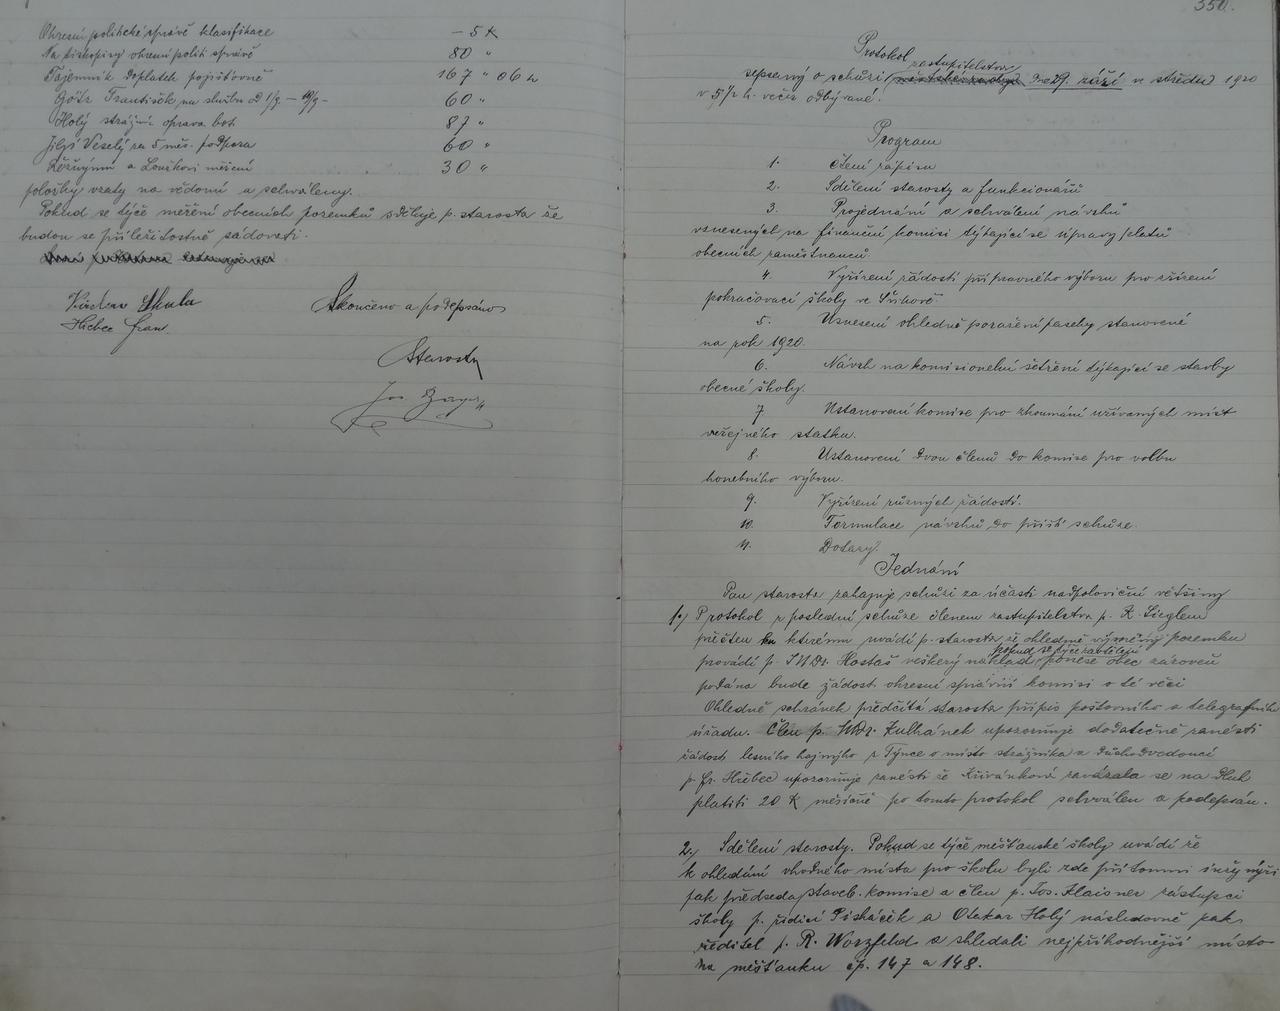 Okresní politické správě klasifikace — 5 K
Na tiskopisy okresní politi správě 80 "
Tajemník doplatek pojišťovně 167 " 06 h
Götz František na službu od 1/9 — 19/9 - 60 "
Holý strážní oprava bot 87 "
Jiljí Veselý za 5 měs. podpora 60 "
a Louškovi měření 30 "
položky vzaty na vědomí a schváleny.
Pokud se týče měření obecních pozemků sděluje p. starosta že
budou se příležitostně sádovati.
Skála Skončeno a podepsáno
Hiebec Franc
Starosta
Jos
350.
Protokol
zastupitelstva
sepsaný o schůzi dne 29. září ve středu 1920
v 5 1/2 h. večer odbývané.
Program
1. čtení zápisu
2. Sdělení starosty a funkcionářů
3. Projednání a schválení návrhů
vznesených na finanční komisi týkající se úpravy platů
obecních zaměstnanců
4. Vyřízení žádosti přípravného výboru pro zřízení
pokračovací školy ve
5. Usnesení ohledně poražení paseky stanovené
na rok 1920.
6. Návrh na komisionelní šetření týkající se stavby
obecné školy.
7. Ustanovení komise pro zkoumání užívaných míst
veřejného statku.
8. Ustanovení dvou členů do komise pro volbu
honebního výboru.
9. Vyřízení různých žádostí.
10. Formulace návrhů do příští schůze.
11. Dotazy.
Jednání
Pan starosta zahajuje schůzi za účasti nadpoloviční většiny
1.) Protokol z poslední schůze členem zastupitelstva p. R. Sieglem
přečten ku kterému uvádí p. starosta že ohledně výměny pozemku
pokud se týče zavtělení
provádí p. JUDr. Hostaš veškerý náklad ponese obec zároveň
podána bude žádost okresní správní komisi o té věci
Ohledně schránek předčítá starosta přípis poštovního a telegrafního
úřadu. Člen p. MUDr. Zulhánek upozorňuje dodatečně zanésti
žádost lesního hajného z Týnce o místo strážníka a důchodvedoucí
p. Fr. Hiebec upozorňuje zanésti že Křivánková zavázala se na dluh
platiti 20 K měsíčně po tomto protokol schválen a podepsán.
2.) Sdělení starosty. Pokud se týče měšťanské školy uvádí že
k ohledání vhodného místa pro školu byli zde přítomni inženýři
pak předseda staveb. komise a člen p. Jos. Klaisner zástupci
školy p. řídící Pisháček a Otakar Holý následovně pak
ředitel p. R. Worzfeld a shledali nejpříhodnější místo
na měšťanku čp. 147 a 148.